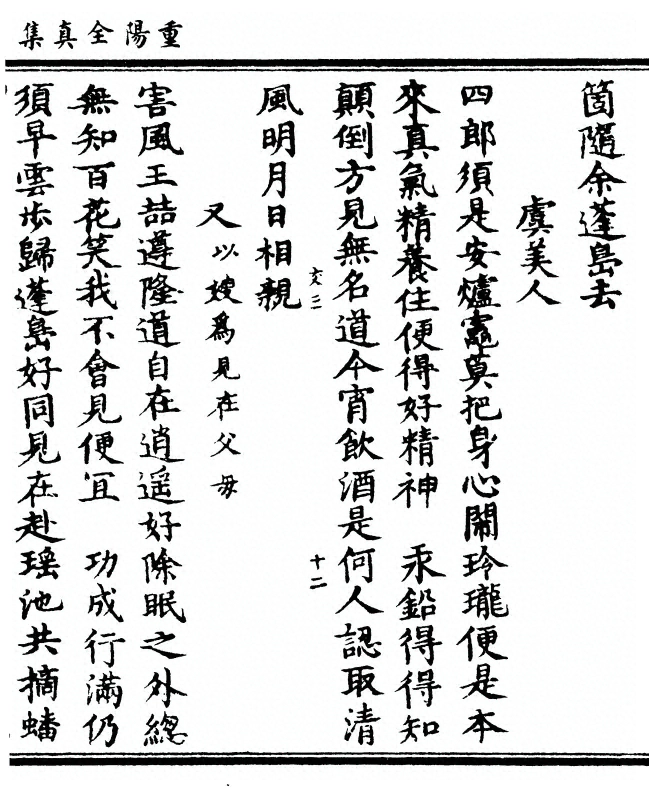 重陽全真集
箇隨余蓬島去
虞美人
四郎須是安爐竈莫把身心鬧玲瓏便是本
來真氣精養住便得好精神　汞鉛得得知
顛倒方見無名道今宵飲酒是何人認取清
交三　十二
風明月日相親
又以嫂爲見在父母
害風王喆遵隆道自在逍遥好除眠之外總
無知百花笑我不會見便冝　功成行滿仍
須早雲步歸蓬島好同見在赴瑶池共摘蟠